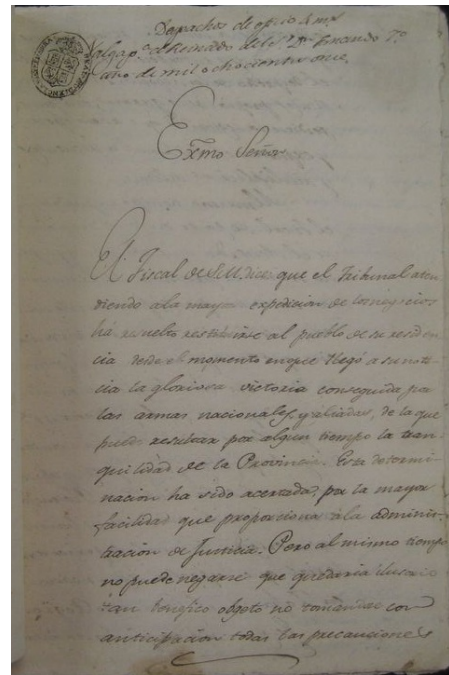 Despachos de oficio 4 mrs
Valga pa. el Reinado del Sr. Dn. Fernando 7o
año de mil ochocientos once
Exmo Señor
El Fiscal de S.M. dice: que el Tribunal aten
diendo a la mayor expedicion de los negocios
há resuelto restituirse al pueblo de su residen
cia desde el momento en que llegó a su noti
cia la gloriosa victoria conseguida por
las armas nacionales, y aliadas, de la que
puede resultar por algun tiempo la tran
quilidad de la Provincia. Esta determi
nacion ha sido acertada, por la mayor
facilidad que proporciona ála adminis
tracion de Justicia. Pero al mismo tiempo
no puede negarse que quedaria ilusorio
tan benefico obgeto no tomandose con
anticipacion todas las precauciones